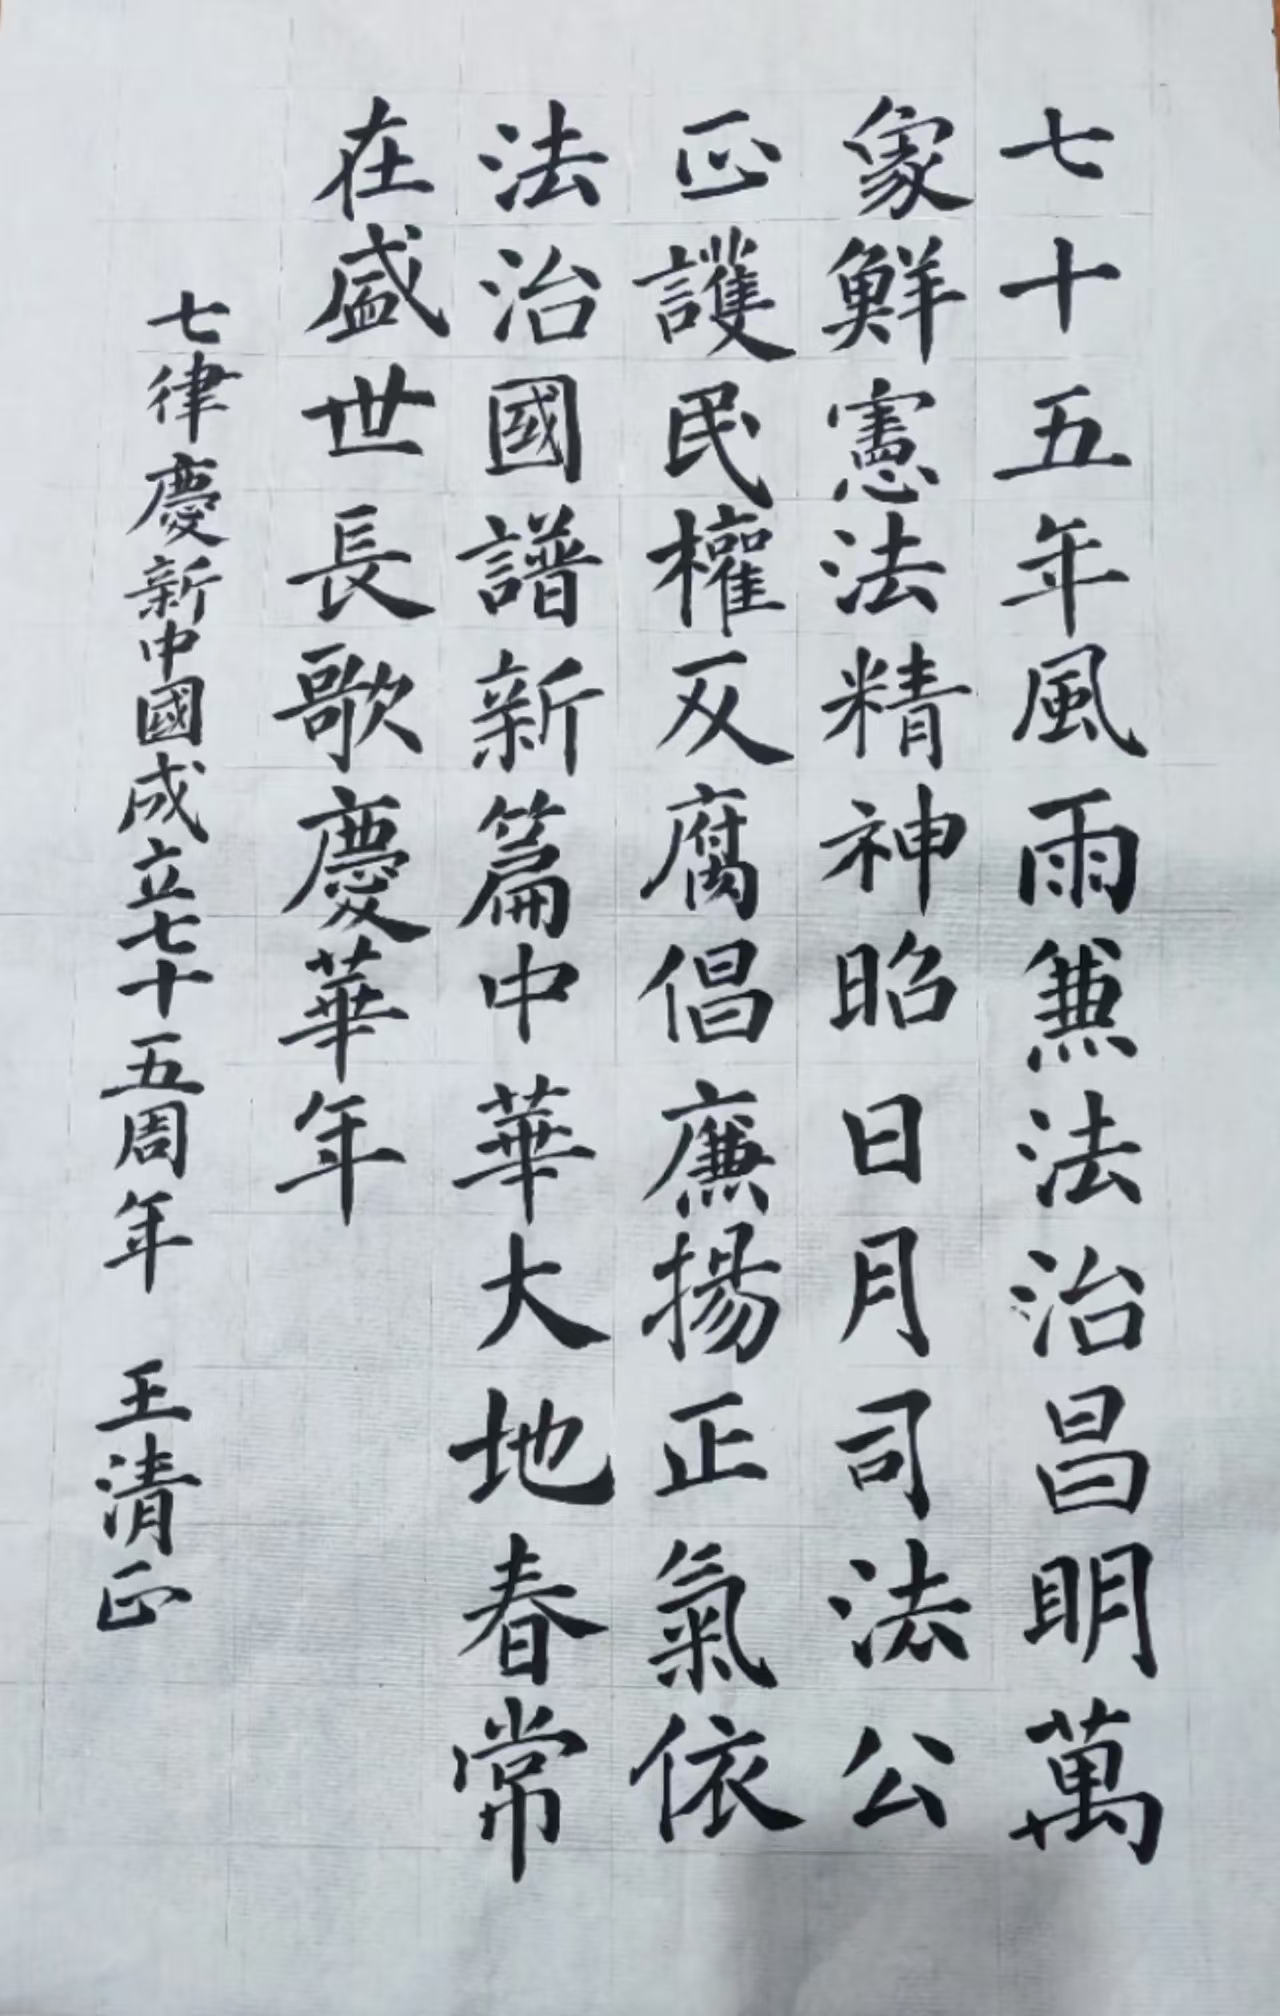 七十五年風雨兼法治昌明萬
象鮮憲法精神昭日月司法公
正護民權反腐倡廉揚正氣依
法治國譜新篇中華大地春常
在盛世長歌慶華年
七律慶新中國成立七十五周年 王清正